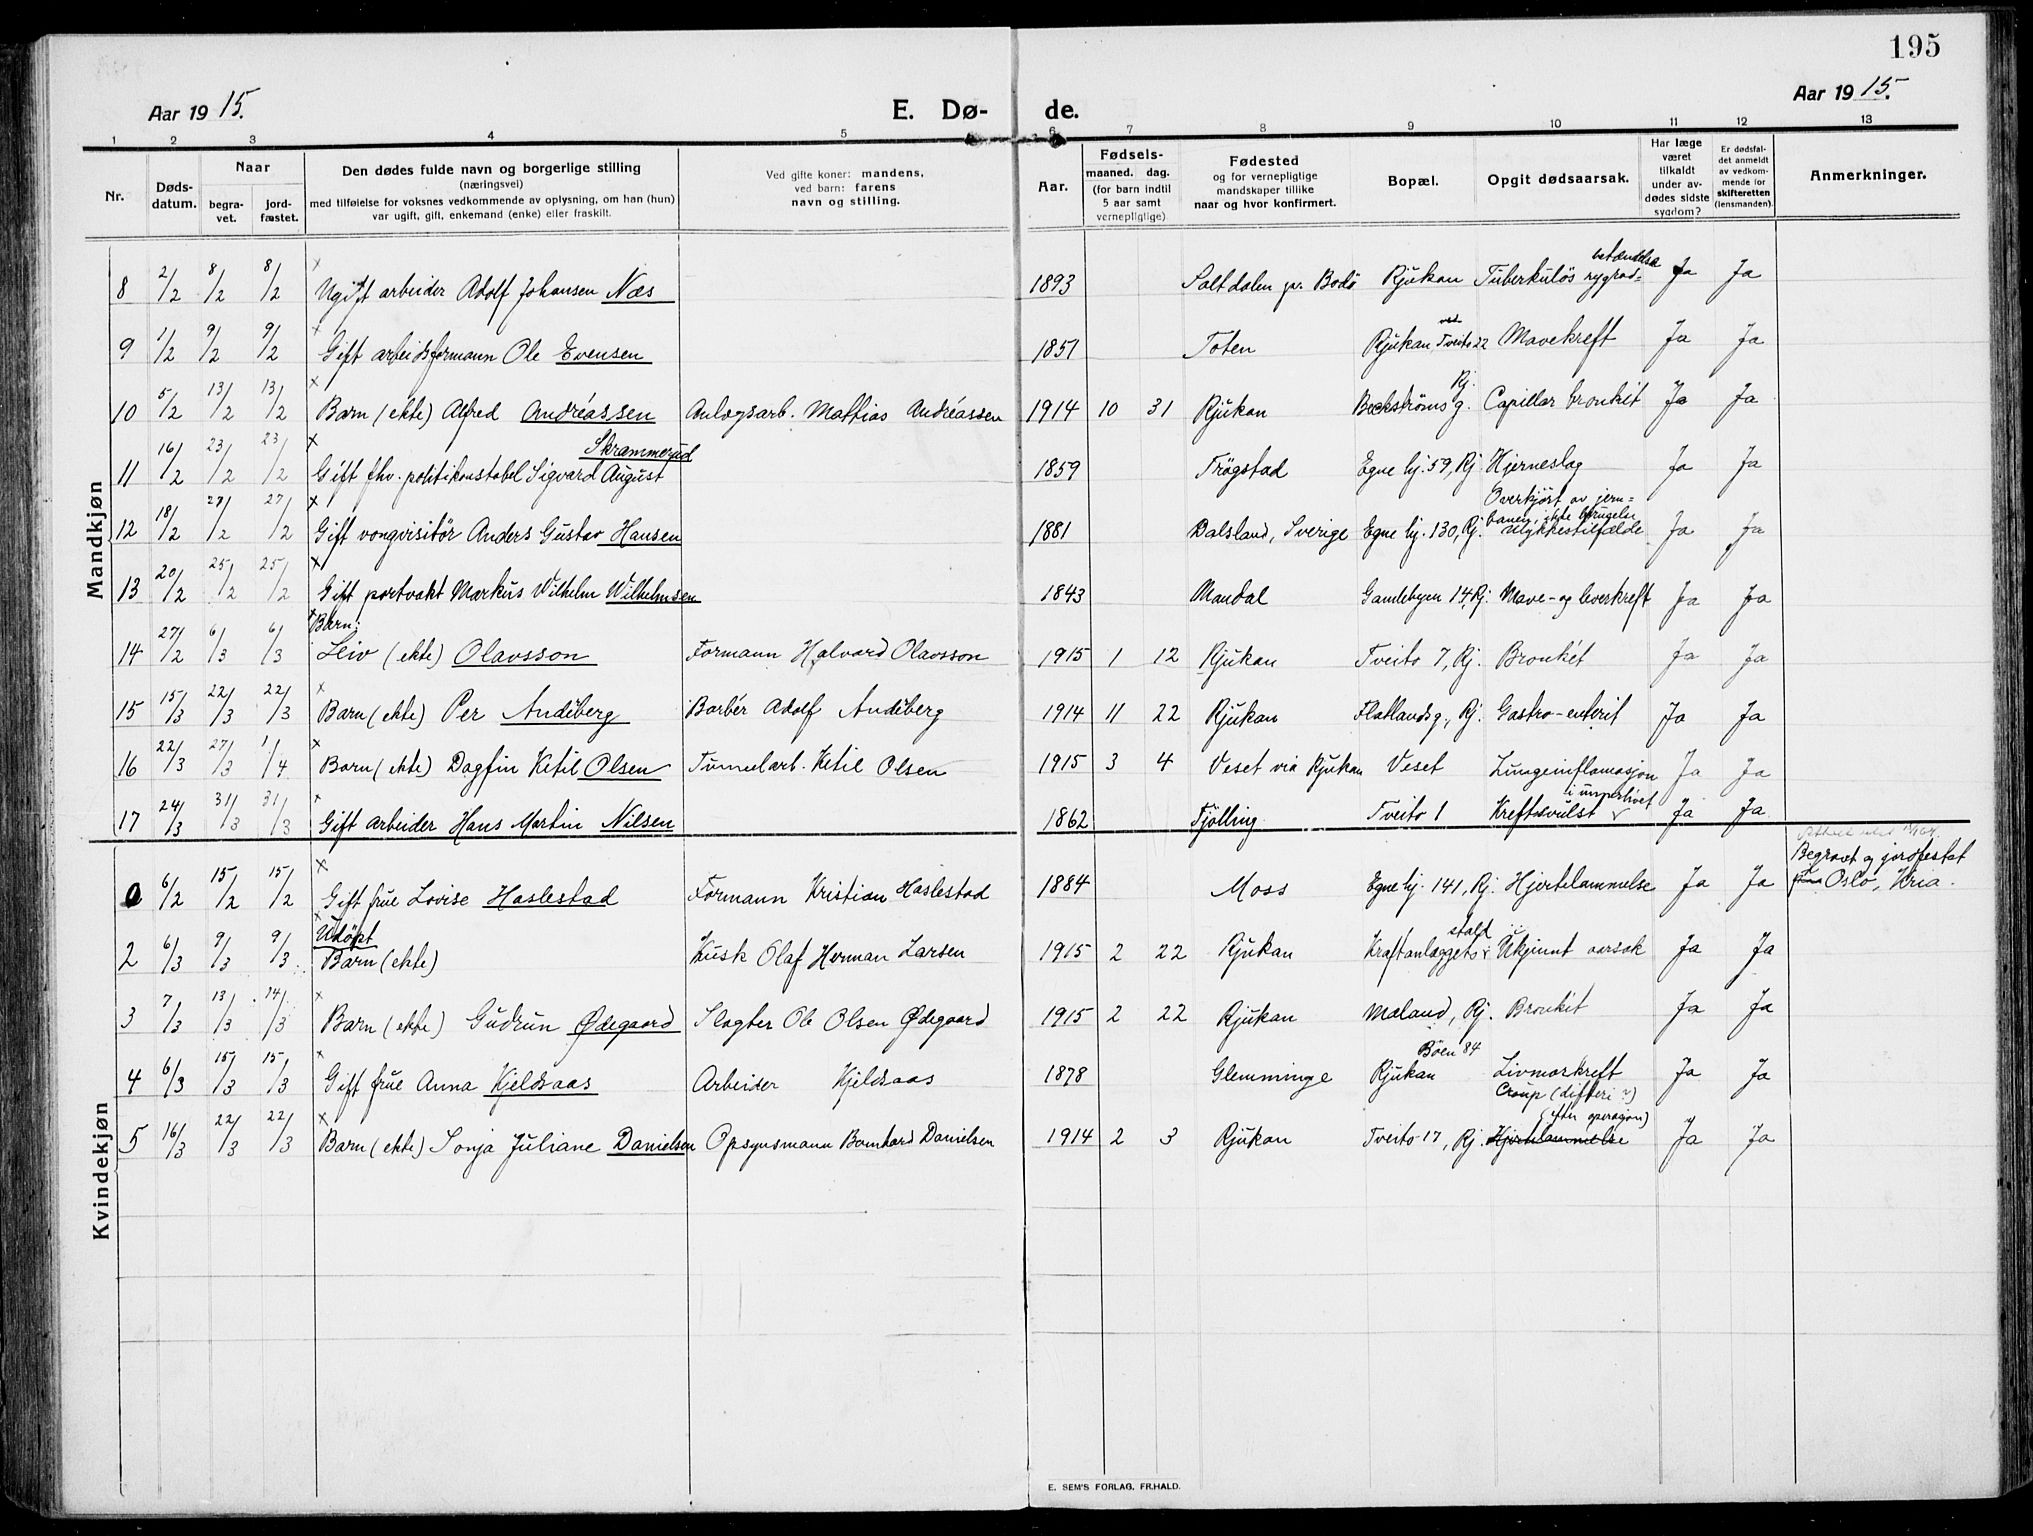 195
Aar 1915. E. Dø- de. Aar 1915.
1 2 3 4 5 6 7 8 9 10 11 12 13
Nr. Døds-datum. Naar begra-vet. jord-fæstet. Den dødes fulde navn og borgerlige stilling (næringsvei) med tilføielse for voksnes vedkommende av oplysning, om han (hun) var ugift, gift, enkemand (enke) eller fraskilt. Ved gifte koner: mandens, ved barn: farens navn og stilling. Aar. Fødsels- maaned. dag. (for barn indtil 5 aar samt vernepligtige) Fødested og for vernepligtige mandskaper tillike naar og hvor konfirmert. Bopæl. Opgit dødsaarsak. Har læge været tilkaldt under av-dødes sidste sygdom? Er dødsfal-det anmeldt av vedkom-mende for skifteretten (lensmanden). Anmerkninger.
Mandkjøn
8 2/2 8/2 8/2 x Ugift arbeider Adolf Johansen Næs 1893 Saltdalen pr. Bodø Rjukan Tuberkuløs rygrad= betændelse Ja Ja
9 1/2 9/2 9/2 x Gift arbeidsformann Ole Evensen 1851 Toten Rjukan ved Tveito 22 Mavekreft Ja Ja
10 5/2 13/2 13/2 x Barn (ekte) Alfred Andréassen Anlægsarb. Mattias Andréassen 1914 10 31 Rjukan Beckströms g. Rj. Capillær bronkit Ja Ja
11 16/2 23/2 23/2 x Gift fhv. politikonstabel Sigvard August Skrammerud 1859 Trøgstad Egne hj. 59, Rj Hjerneslag Ja Ja
12 18/2 27/2 27/2 x Gift vongvisitør Anders Gustav Hansen 1881 Dalsland, Sverige Egne hj. 130, Rj. Overkjørt av jern= banen, ulykkestilfælde Ja Ja
13 20/2 25/2 25/2 x Gift portvakt Markus Vilhelm Wilhelmsen 1843 Mandal Gamlebyen 14, Rj. Mave- og leverkreft Ja Ja
14 27/2 6/3 6/3 x Barn: Leiv (ekte) Olavsson Formann Halvard Olavsson 1915 1 12 Rjukan Tveito 7, Rj. Bronkit Ja Ja
15 15/3 22/3 22/3 x Barn (ekte) Per Andiberg Barbér Adolf Andiberg 1914 11 22 Rjukan Flatlandsg., Rj. Gastro-enterit Ja Ja
16 22/3 27/3 1/4 x Barn (ekte) Dagfin Ketil Olsen Tunnelarb. Ketil Olsen 1915 3 4 Veset via Rjukan Veset Lungeinflamasjon Ja Ja
17 24/3 31/3 31/3 x Gift arbeider Hans Martin Nilsen 1862 Tjölling Tveito 1 Kreftsvulst i underlivet Ja Ja
Kvindekjøn
6/2 15/2 15/2 x Gift frue Lovise Haslestad Formann Kristian Haslestad 1884 Moss Egne hj. 141, Rj. Hjertelammelse Ja Ja Begravet og jordfestet Oslo, Kria.
2 6/3 9/3 9/3 x Udöpt Barn (ekte) Kusk Olaf Herman Larsen 1915 2 22 Rjukan Kraftanlæggets stald Ukjennt aarsak Ja Ja
3 7/3 13/3 14/3 x Barn (ekte) Gudrun Ødegaard Slagter Ole Olsen Ødegaard 1915 2 22 Rjukan Mæland, Rj. Bronkit Ja Ja
4 6/3 15/3 15/3 x Gift frue Anna Kjeldsaas Arbeider Kjeldsaas 1878 Glemminge Rjukan Böen 84 Livmorkreft Ja Ja
5 16/3 22/3 22/3 x Barn (ekte) Sonja Juliane Danielsen Opsynsmann Bernhard Danielsen 1914 2 3 Rjukan Tveito 17, Rj. Croup (difteri ?) (efter operasjon) Hjertelammelse Ja Ja
E. SEM'S FORLAG. FR.HALD.